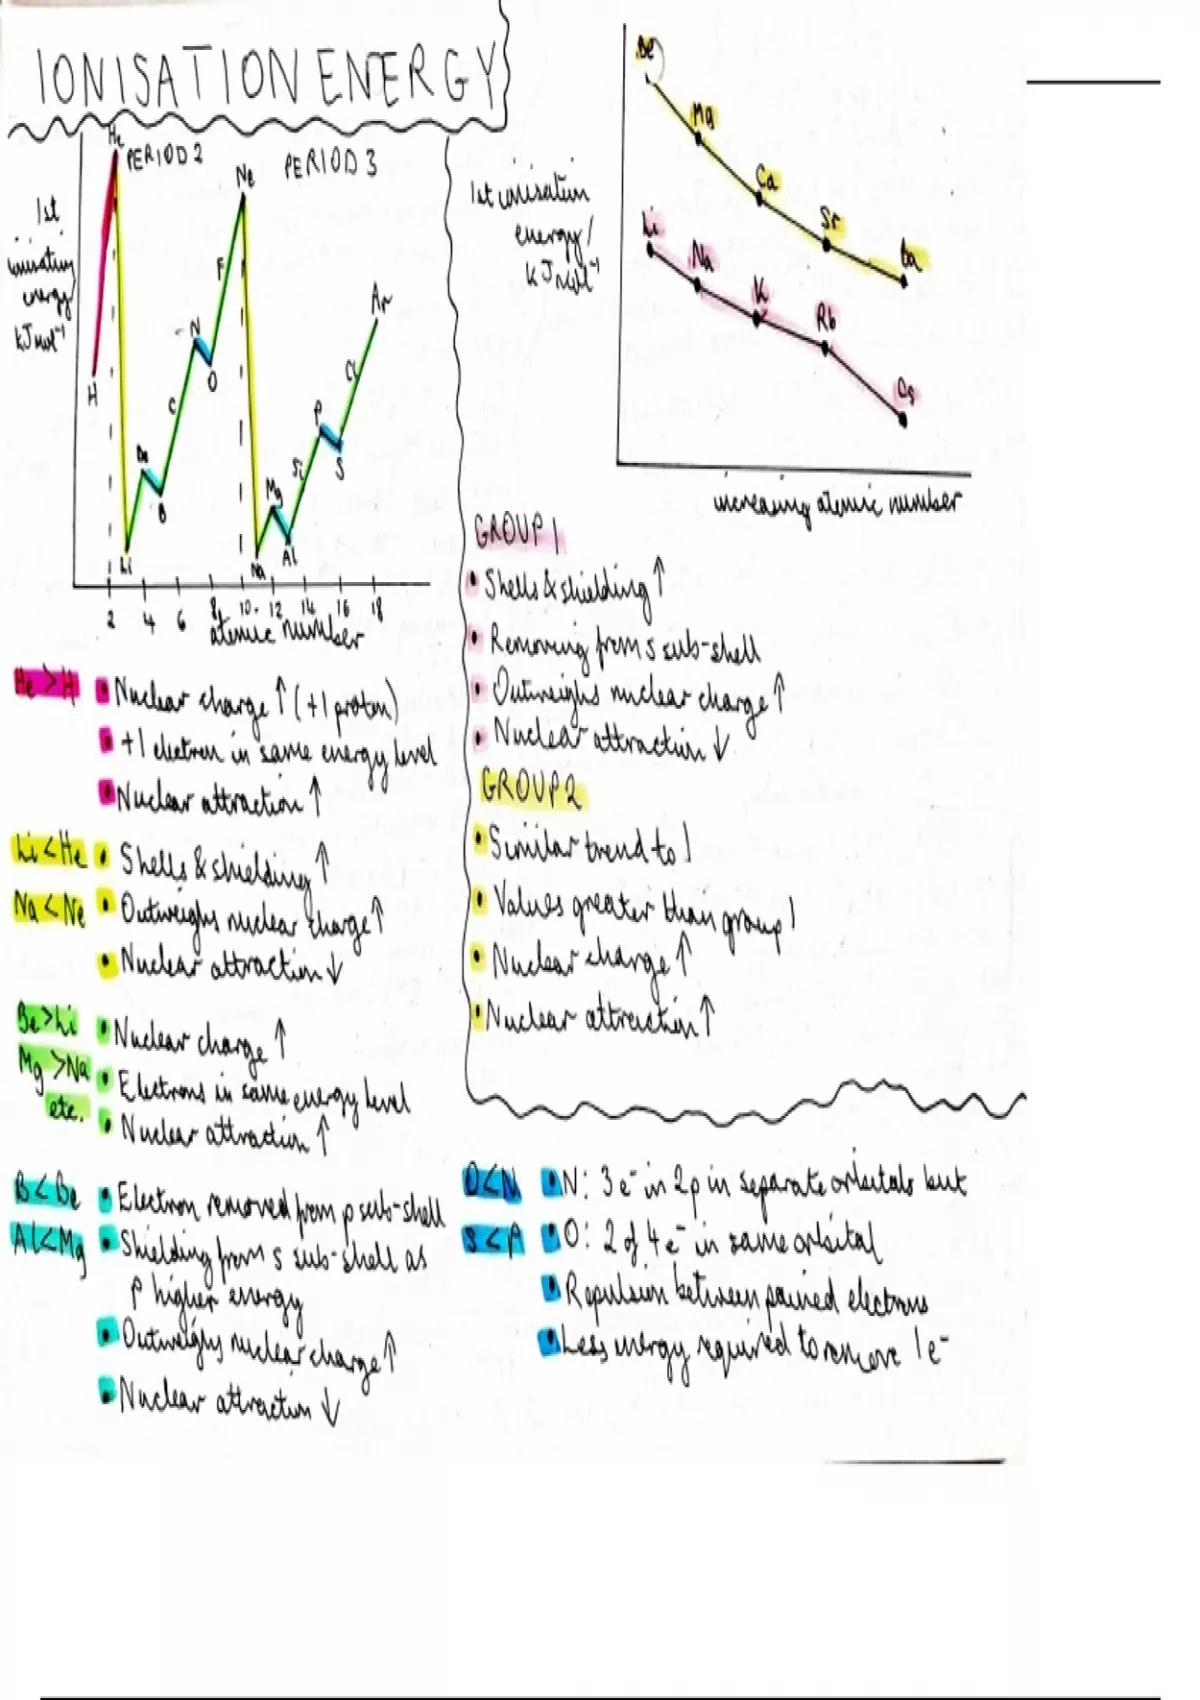 IONISATION ENERGY
He
PERIOD 2
PERIOD 3
1st
ionisation
energy/
kJmol⁻¹
H
Li
Be
B
C
N
O
F
Ne
Na
Mg
Al
Si
P
S
Cl
Ar
2 4 6 8 10 12 14 16 18
atomic number
1st ionisation
energy/
kJmol⁻¹
Be
Mg
Ca
Sr
Ba
Li
Na
K
Rb
Cs
increasing atomic number
GROUP 1
• Shells & shielding ↑
• Removing from s sub-shell
• Outweighs nuclear charge ↑
• Nuclear attraction ↓
GROUP 2
• Similar trend to 1
• Values greater than group 1
• Nuclear charge ↑
• Nuclear attraction ↑
He > H • Nuclear charge ↑ (+1 proton)
• +1 electron in same energy level
• Nuclear attraction ↑
Li < He • Shells & shielding ↑
Na < Ne • Outweighs nuclear charge ↑
• Nuclear attraction ↓
Be > Li • Nuclear charge ↑
Mg > Na • Electrons in same energy level
etc. • Nuclear attraction ↑
B < Be • Electron removed from p sub-shell
Al < Mg • Shielding from s sub-shell as
P higher energy
• Outweighs nuclear charge ↑
• Nuclear attraction ↓
O < N • N: 3e⁻ in 2p in separate orbitals but
S < P • O: 2 of 4e⁻ in same orbital
• Repulsion between paired electrons
• Less energy required to remove 1e⁻